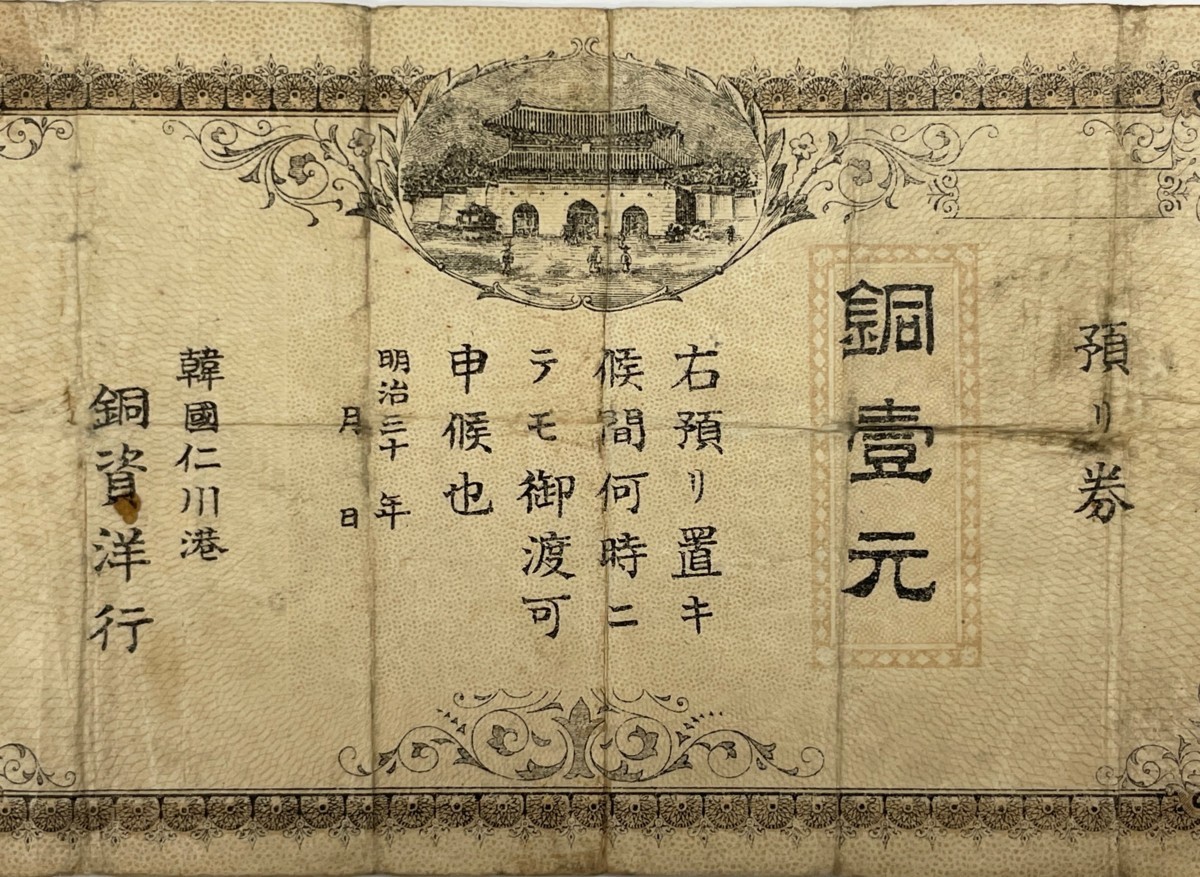 預リ券
銅壹元
右預リ置キ
候間何時ニ
テモ御渡可
申候也
明治三十　年
月　日
韓國仁川港
銅資洋行